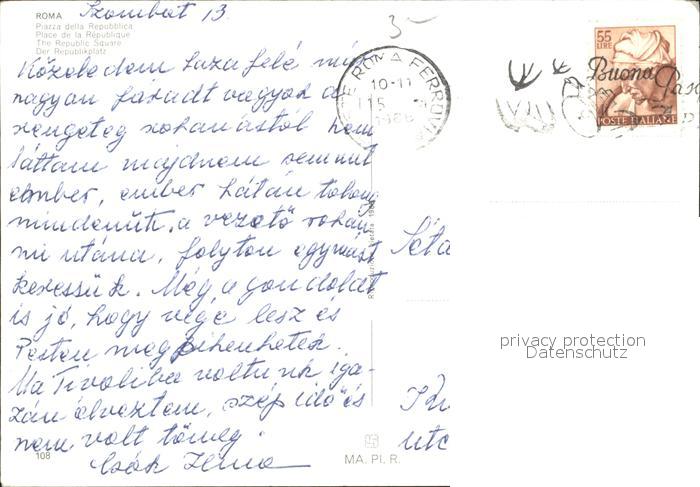 Szombat 13.
ROMA
Piazza della Repubblica
Place de la République
The Republic Square
Der Republikplatz
Közeledem haza felé már
nagyon fáradt vagyok a
rengeteg rohanástól. Nem
láttam majdnem semmit
ember, ember hátán tolong
mindenütt, a vezető rohan
mi utána, folyton egymást
keressük. Még a gondolat
is jó, hogy vége lesz és
Pesten megpihenhetek.
Ma Tivoliba voltunk iga-
zán élveztem, szép idő és
nem volt tömeg.
Csók
108
MA. PI. R.
3
ROMA FERROVIA
10-11
15
55
LIRE
POSTE ITALIANE
Buona
Séta
utc
privacy protection
Datenschutz